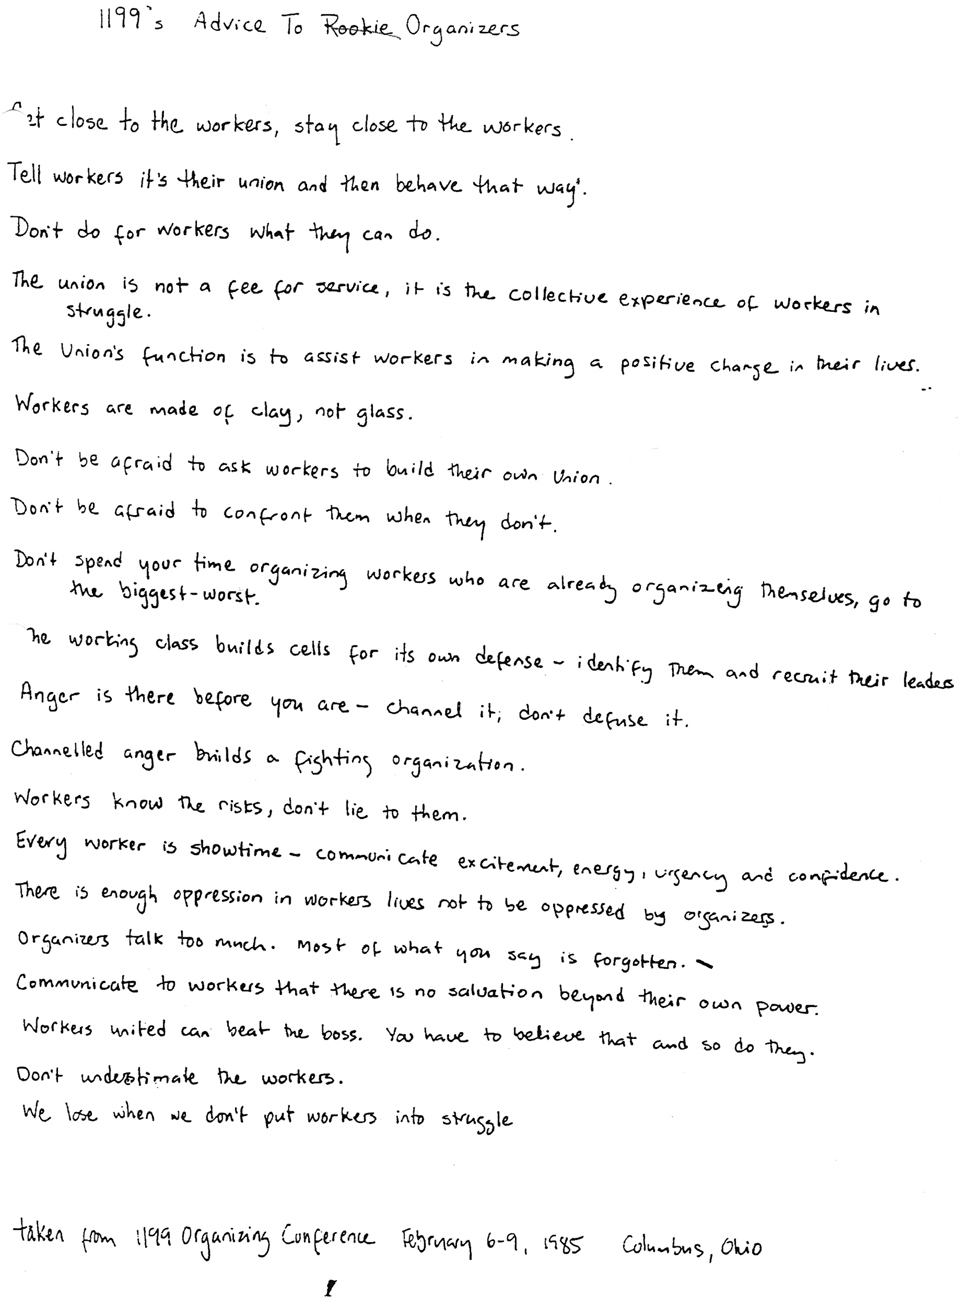 1199's Advice To Rookie Organizers
Get close to the workers, stay close to the workers.
Tell workers it's their union and then behave that way.
Don't do for workers what they can do.
The union is not a fee for service, it is the collective experience of workers in
struggle.
The Union's function is to assist workers in making a positive change in their lives.
Workers are made of clay, not glass.
Don't be afraid to ask workers to build their own Union.
Don't be afraid to confront them when they don't.
Don't spend your time organizing workers who are already organizeing themselves, go to
the biggest-worst.
The working class builds cells for its own defense - identify them and recruit their leaders
Anger is there before you are - channel it; don't defuse it.
Channelled anger builds a fighting organization.
Workers know the risks, don't lie to them.
Every worker is showtime - communicate excitement, energy, urgency and confidence.
There is enough oppression in workers lives not to be oppressed by organizers.
Organizers talk too much. Most of what you say is forgotten.
Communicate to workers that there is no salvation beyond their own power.
Workers united can beat the boss. You have to believe that and so do they.
Don't underestimate the workers.
We lose when we don't put workers into struggle
taken from 1199 Organizing Conference February 6-9, 1985 Columbus, Ohio